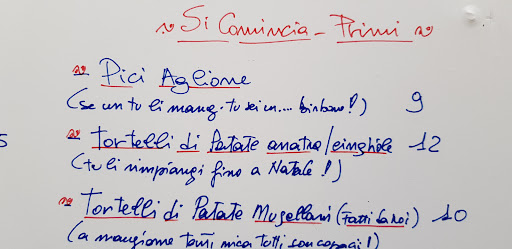 Si Comincia - Primi
Pici Aglione
(se un tu li mang. tu sei un.... birbone!) 9
5
Tortelli di Patate anatra/cinghiale 12
(tu li rimpiangi fino a Natale!)
Tortelli di Patate Mugellani (Fatti da noi) 10
(a mangionne tanti, mica tutti son capaci!)